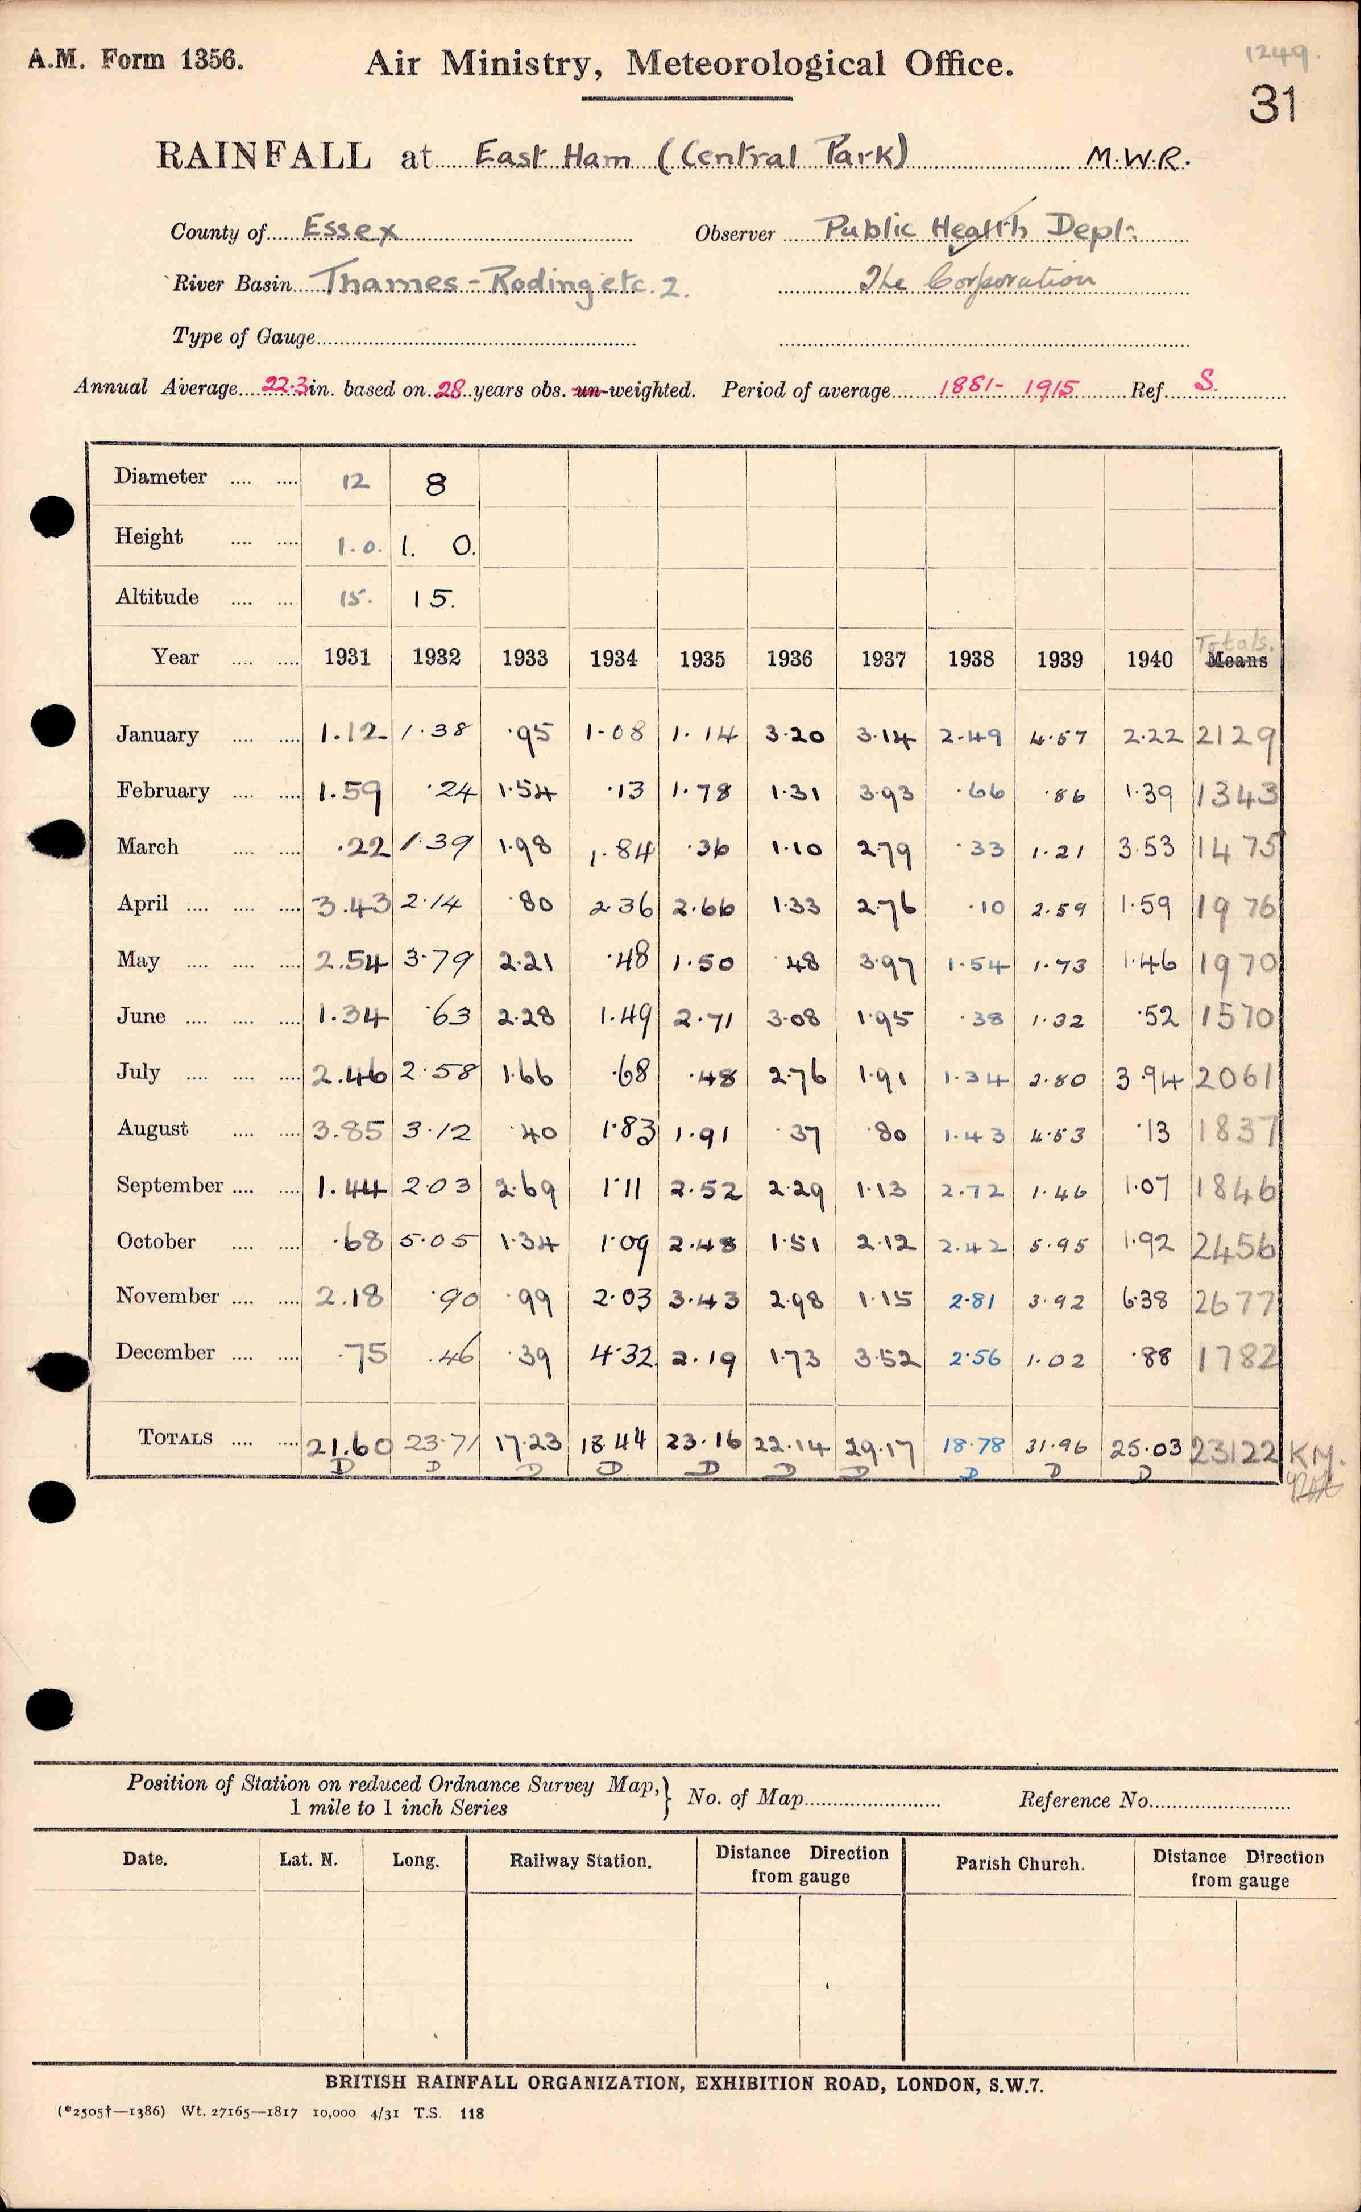 1249.
A.M. Form 1356. Air Ministry, Meteorological Office.
31
RAINFALL at East Ham (Central Park) M.W.R.
County of Essex Observer Public Health Dept.
River Basin Thames - Roding etc. 2. The Corporation
Type of Gauge
Annual Average 22.3 in. based on 28 years obs. un-weighted. Period of average 1881- 1915 Ref. S.
Diameter 12 8
Height 1.0. 1. 0.
Altitude 15. 15.
Totals.
Year 1931 1932 1933 1934 1935 1936 1937 1938 1939 1940 Means
January 1.12 1.38 .95 1.08 1.14 3.20 3.14 2.49 4.57 2.22 2129
February 1.59 .24 1.54 .13 1.78 1.31 3.93 .66 .86 1.39 1343
March .22 1.39 1.98 1.84 .36 1.10 2.79 .33 1.21 3.53 1475
April 3.43 2.14 .80 2.36 2.66 1.33 2.76 .10 2.59 1.59 1976
May 2.54 3.79 2.21 .48 1.50 .48 3.97 1.54 1.73 1.46 1970
June 1.34 .63 2.28 1.49 2.71 3.08 1.95 .38 1.32 .52 1570
July 2.46 2.58 1.66 .68 .48 2.76 1.91 1.34 2.80 3.94 2061
August 3.85 3.12 .40 1.83 1.91 .37 .80 1.43 4.53 .13 1837
September 1.44 2.03 2.69 1.11 2.52 2.29 1.13 2.72 1.46 1.07 1846
October .68 5.05 1.34 1.09 2.48 1.51 2.12 2.42 5.95 1.92 2456
November 2.18 .90 .99 2.03 3.43 2.98 1.15 2.81 3.92 6.38 2677
December .75 .46 .39 4.32 2.19 1.73 3.52 2.56 1.02 .88 1782
TOTALS 21.60 23.71 17.23 18.44 23.16 22.14 29.17 18.78 31.96 25.03 23122 KM.
D D D D D D D D D D
Position of Station on reduced Ordnance Survey Map, 1 mile to 1 inch Series } No. of Map Reference No.
Date. Lat. N. Long. Railway Station. Distance Direction from gauge Parish Church. Distance Direction from gauge
BRITISH RAINFALL ORGANIZATION, EXHIBITION ROAD, LONDON, S.W.7.
(*2505†—1386) Wt. 27165—1817 10,000 4/31 T.S. 118